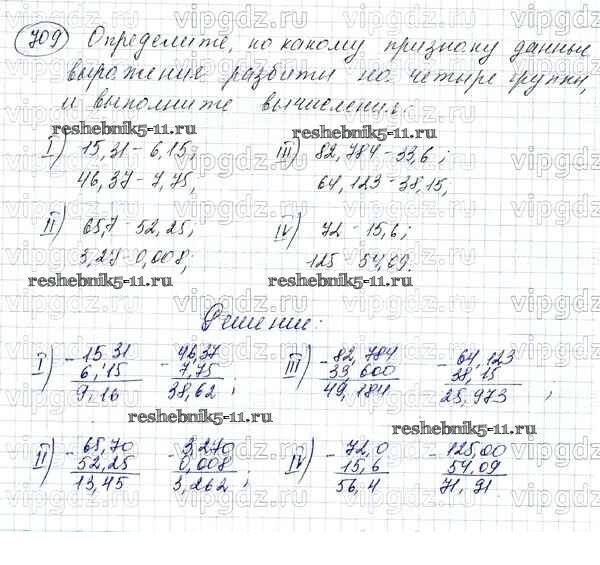 709) Определите, по какому признаку данные
выражения разбиты на четыре группы,
и выполните вычисления:
reshebnik5-11.ru reshebnik5-11.ru
I) 15,31 - 6,15; III) 82,784 - 33,6;
46,37 - 7,75, 64,123 - 38,15;
II) 65,7 - 52,25; IV) 72 - 15,6;
3,27 - 0,008; 125 - 54,09.
reshebnik5-11.ru reshebnik5-11.ru
Решение:
I) - 15,31 - 46,37 III) - 82,784 - 64,123
6,15 7,75 33,600 38,15
9,16 38,62; 49,184 25,973;
reshebnik5-11.ru reshebnik5-11.ru
II) - 65,70 - 3,270 IV) - 72,0 - 125,00
52,25 0,008 15,6 54,09
13,45 3,262; 56,4 71,91.
reshebnik5-11.ru reshebnik5-11.ru
vipgdz.ru